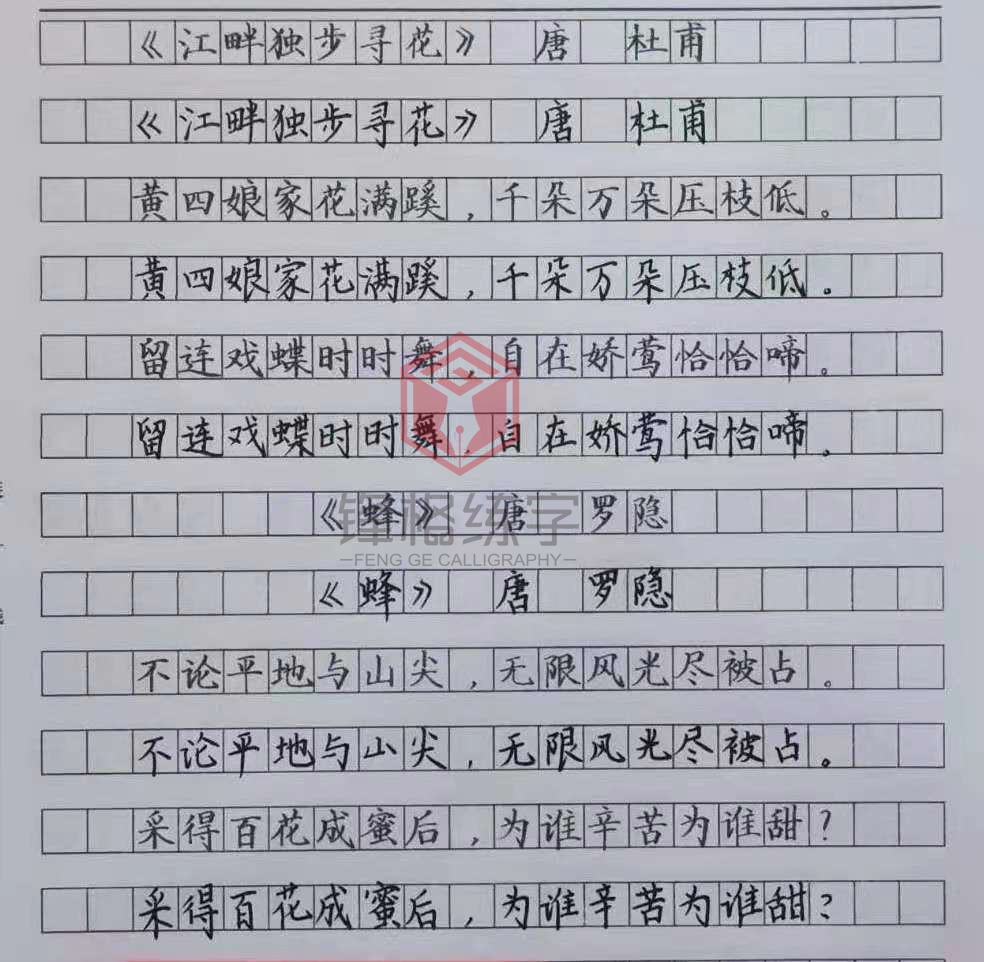 《江畔独步寻花》 唐 杜甫
《江畔独步寻花》 唐 杜甫
黄四娘家花满蹊，千朵万朵压枝低。
黄四娘家花满蹊，千朵万朵压枝低。
留连戏蝶时时舞，自在娇莺恰恰啼。
留连戏蝶时时舞，自在娇莺恰恰啼。
《蜂》 唐 罗隐
锋格练字
—FENG GE CALLIGRAPHY—
《蜂》 唐 罗隐
不论平地与山尖，无限风光尽被占。
不论平地与山尖，无限风光尽被占。
采得百花成蜜后，为谁辛苦为谁甜？
采得百花成蜜后，为谁辛苦为谁甜？